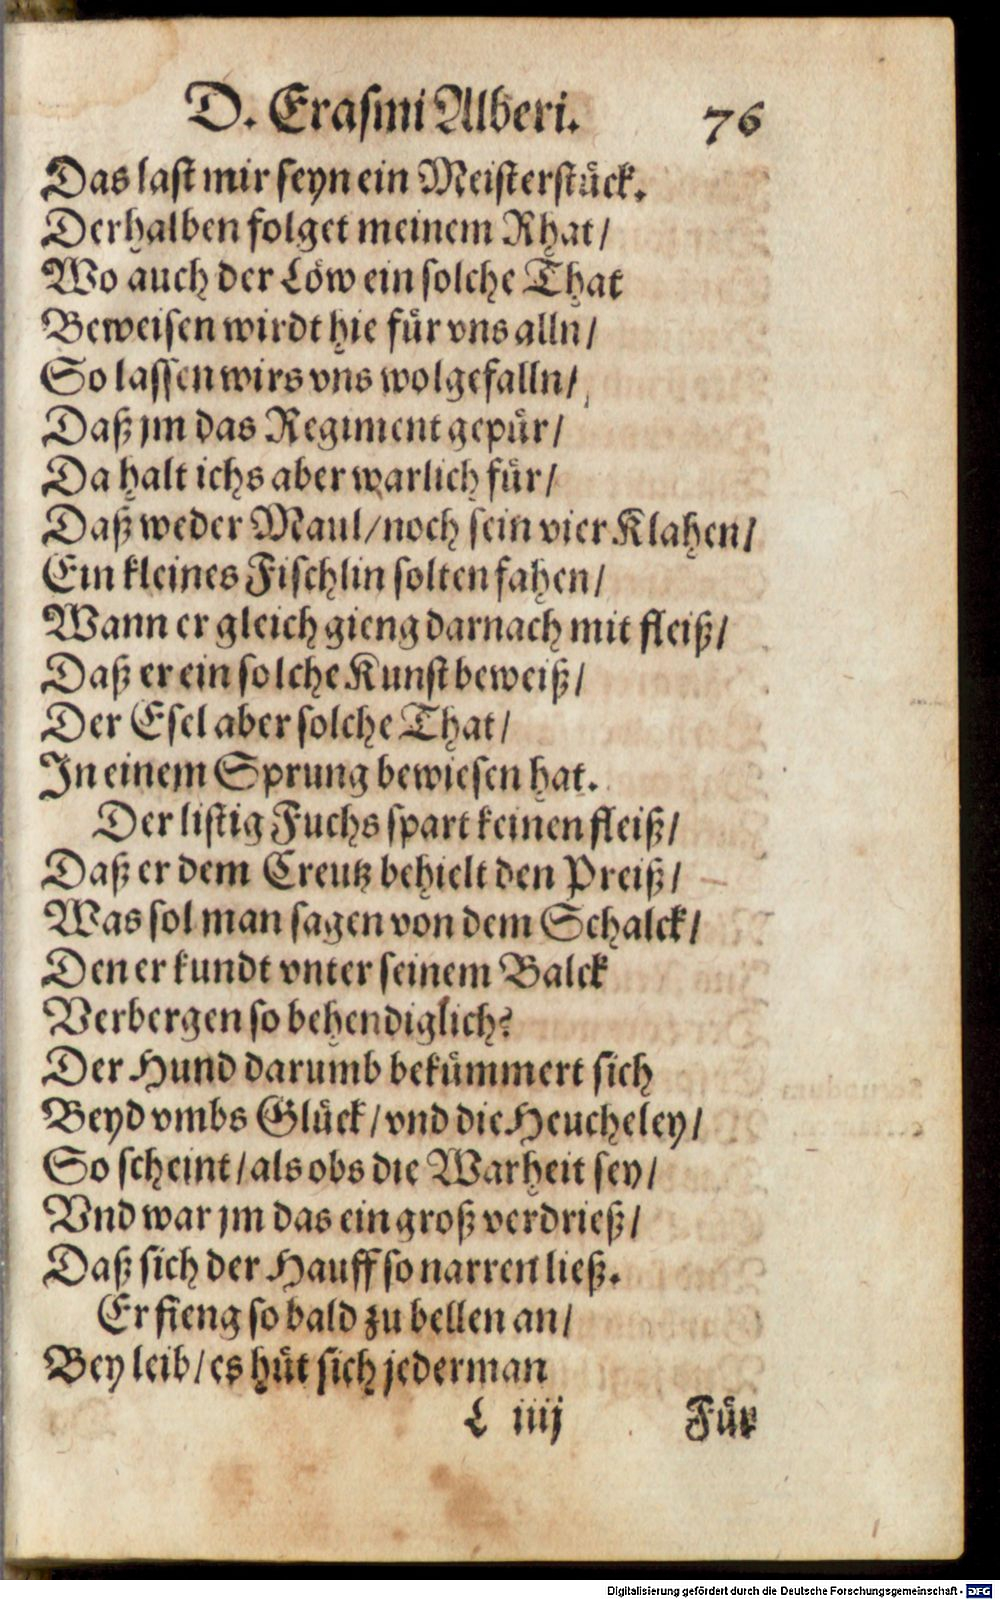 D. Erasmi Alberi. 76
Das last mir seyn ein Meisterstück.
Derhalben folget meinem Rhat/
Wo auch der Löw ein solche That
Beweisen wirdt hie für vns alln/
So lassen wirs vns wolgefalln/
Daß jm das Regiment gepür/
Da halt ichs aber warlich für/
Daß weder Maul/noch sein vier Klahen/
Ein kleines Fischlin solten fahen/
Wann er gleich gieng darnach mit fleiß/
Daß er ein solche Kunst beweiß/
Der Esel aber solche That/
In einem Sprung bewiesen hat.
Der listig Fuchs spart keinen fleiß/
Daß er dem Creutz behielt den Preiß/
Was sol man sagen von dem Schalck/
Den er kundt vnter seinem Balck
Verbergen so behendiglich?
Der Hund darumb bekümmert sich
Beyd vmbs Glück/vnd die Heucheley/
So scheint/als obs die Warheit sey/
Vnd war jm das ein groß verdrieß/
Daß sich der Hauff so narren ließ.
Er fieng so bald zu bellen an/
Bey leib/es hüt sich jederman
L iiij Für
Digitalisierung gefördert durch die Deutsche Forschungsgemeinschaft - DFG